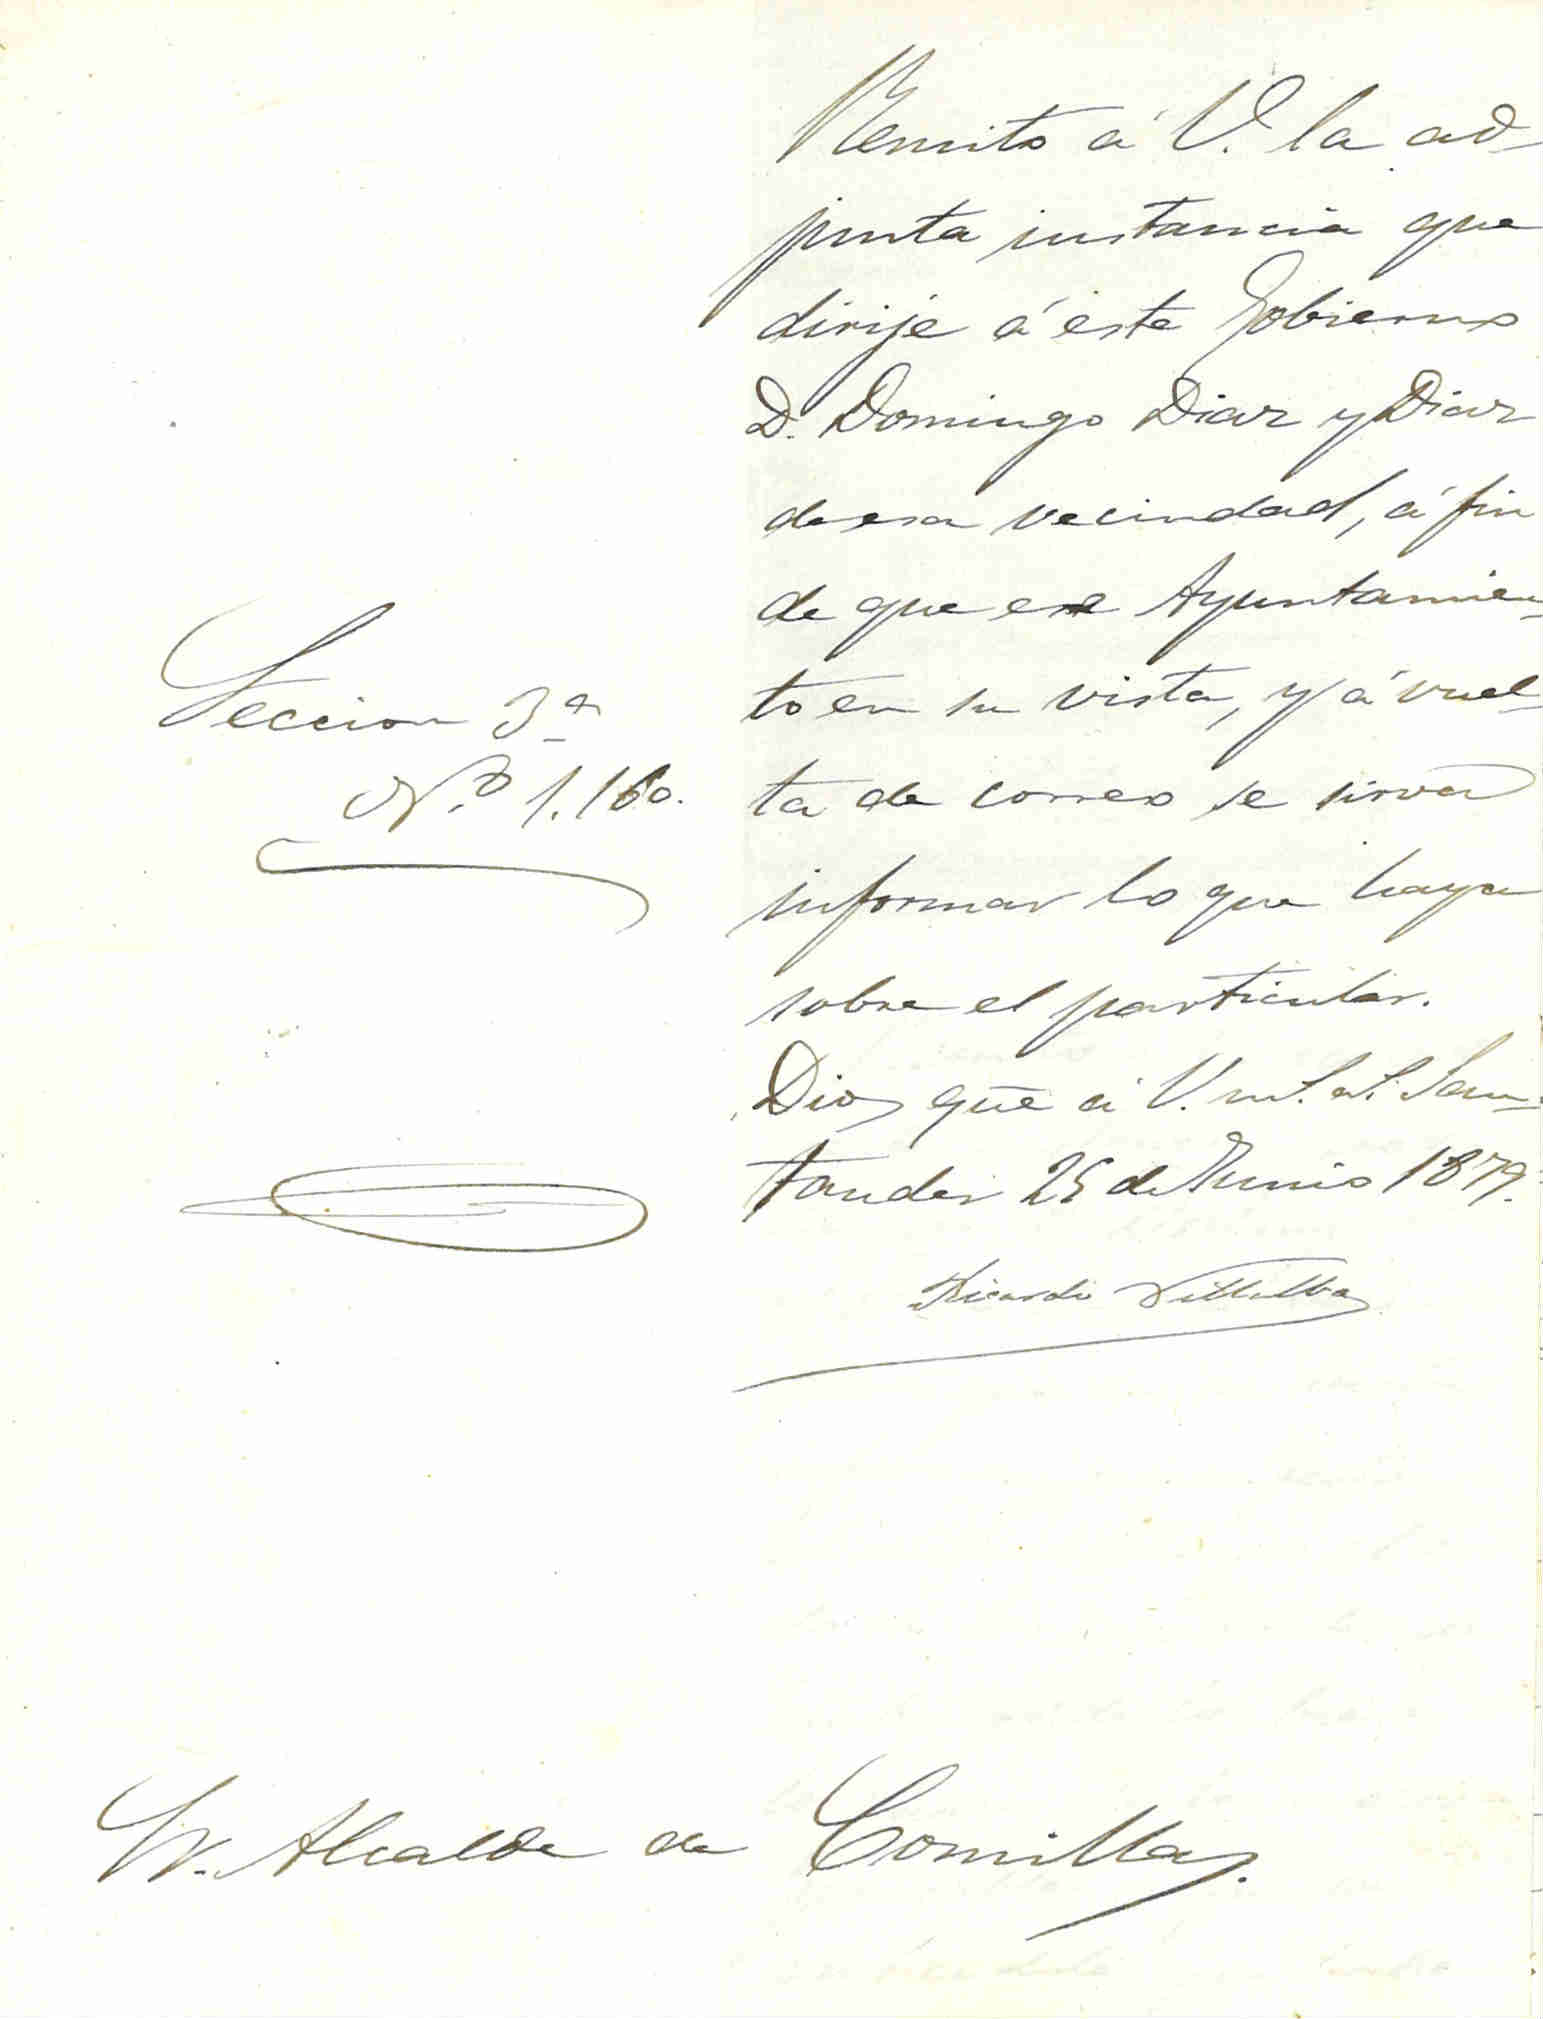 Remito á V. la ad-
junta instancia que
dirije á este Gobierno
D. Domingo Diaz y Diaz
de esa vecindad, á fin
de que ese Ayuntamien-
to en su vista, y á vuel-
ta de correo se sirva
informar lo que haya
sobre el particular.
Dios gue á V. m.s a.s San-
tander 25 de Junio 1879.
Ricardo Villalba
Seccion 3ª
Nº 1.160.
Sr. Alcalde de Comillas.